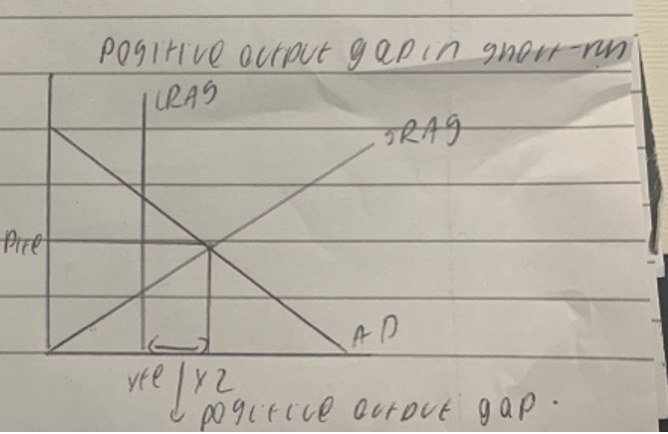 Positive output gap in short-run
LRAS
SRAS
Pfe
AD
Yfe Y2
positive output gap.